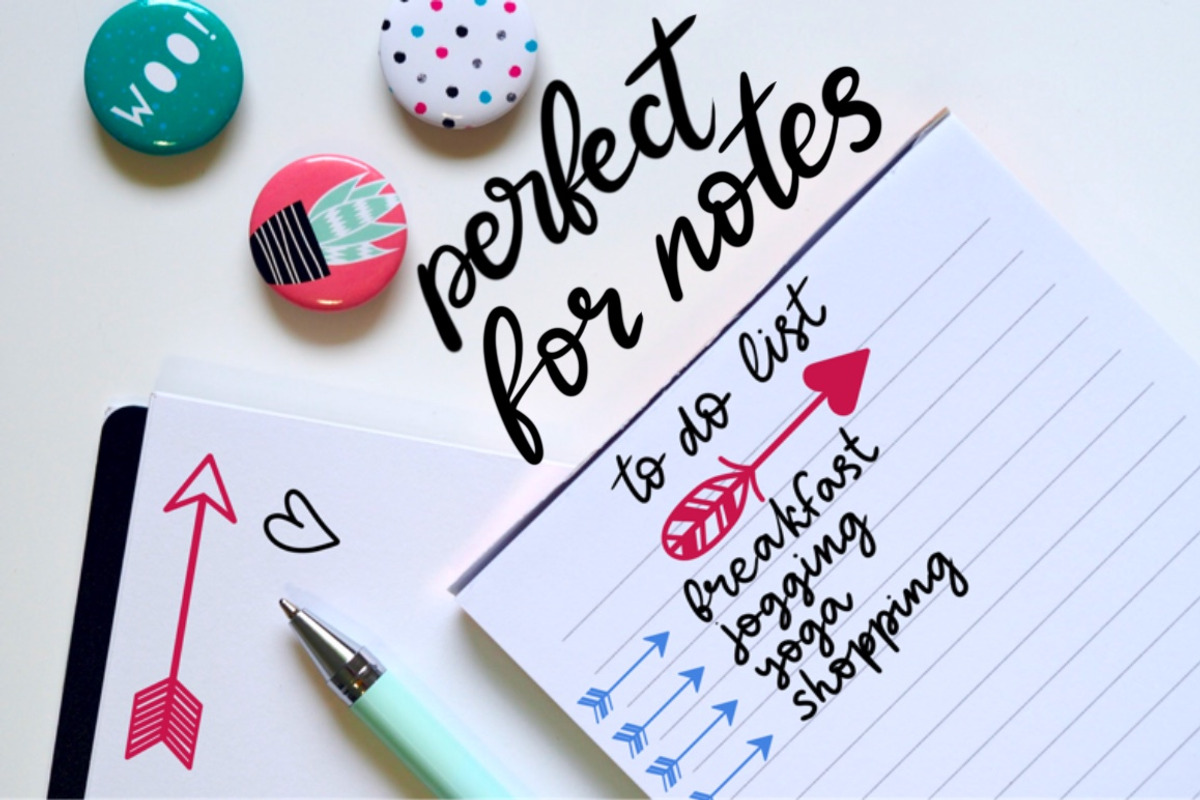 WOO!
perfect
for notes
to do list
breakfast
jogging
yoga
shopping